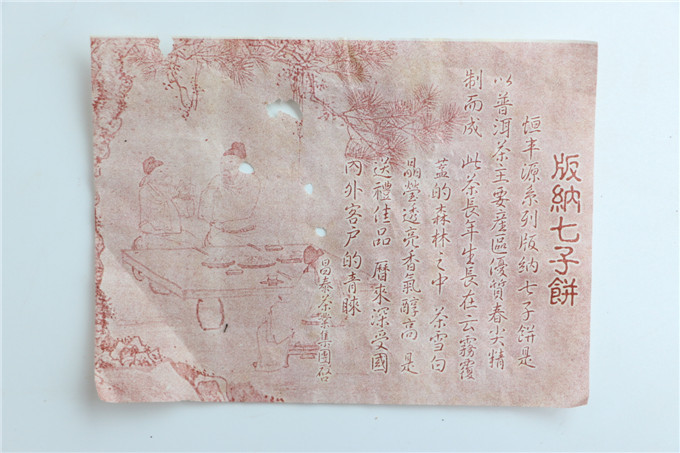 版納七子餅
恒丰源系列版納七子餅是
以普洱茶主要産區優質春尖精
制而成 此茶長年生長在云霧覆
蓋的森林之中 茶雪白
晶瑩透亮香氣醇高 是
送禮佳品 曆來深受國
內外客户的青睞
昌泰茶業集團啓